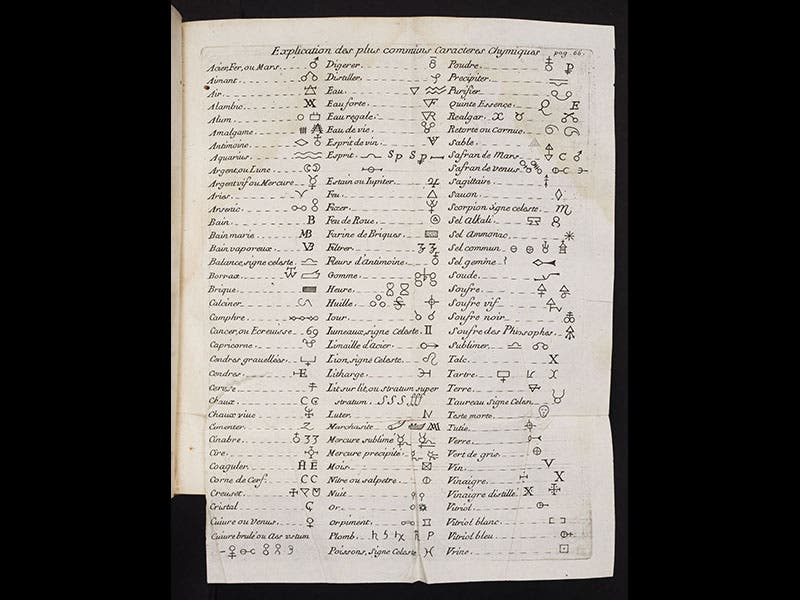 Explication des plus communs Caracteres Chymiques pag. 66.
Acier, Fer, ou Mars
Aimant
Air
Alambic
Alum
Amalgame
Antimoine
Aquarius
Argent, ou Lune
Argent vif ou Mercure
Aries
Arsenic
Bain B
Bain marie MB
Bain vaporeux VB
Balance, signe celeste
Borrax
Brique
Calciner
Camphre
Cancer, ou Ecrevisse 69
Capricorne
Cendres gravellées
Cendres E
Ceruse
Chaux C
Chaux vive
Cimenter Z
Cinabre 33
Cire
Coaguler H E
Corne de Cerf CC
Creuset
Cristal
Cuivre ou Venus
Cuivre brulé ou Aes ustum
Digerer
Distiller
Eau
Eau forte
Eau regale
Eau de vie
Esprit de vin
Esprit Sp Sp
Estain ou Iupiter
Feu
Fixer
Feu de Roue
Farine de Briques
Filtrer
Fleurs d'Antimoine
Gomme
Heure
Huille
Iour
Iumeaux, signe Celeste II
Limaille d'acier
Lion, signe Celeste
Litharge
Lit sur lit, ou stratum super
stratum SSS
Luter
Marchasite
Mercure sublimé
Mercure precipité
Mois
Nitre ou salpetre
Nuit
Or
Orpiment
Plomb
Poissons, Signe Celeste
Poudre
Precipiter
Purifier
Quinte Essence E
Realgar
Retorte ou Cornue
Sable
Safran de Mars
Safran de venus
Sagittaire
Savon
Scorpion Signe celeste
Sel Alkali
Sel Ammonac
Sel commun
Sel gemme
Soude
Soufre
Soufre vif
Soufre noir
Soufre des Philosophes
Sublimer
Talc X
Tartre
Terre
Taureau Signe Celest
Teste morte
Tutie
Verre
Vert de gris
Vin V
Vinaigre X
Vinaigre distillé X
Vitriol
Vitriol blanc
Vitriol bleu
Vrine